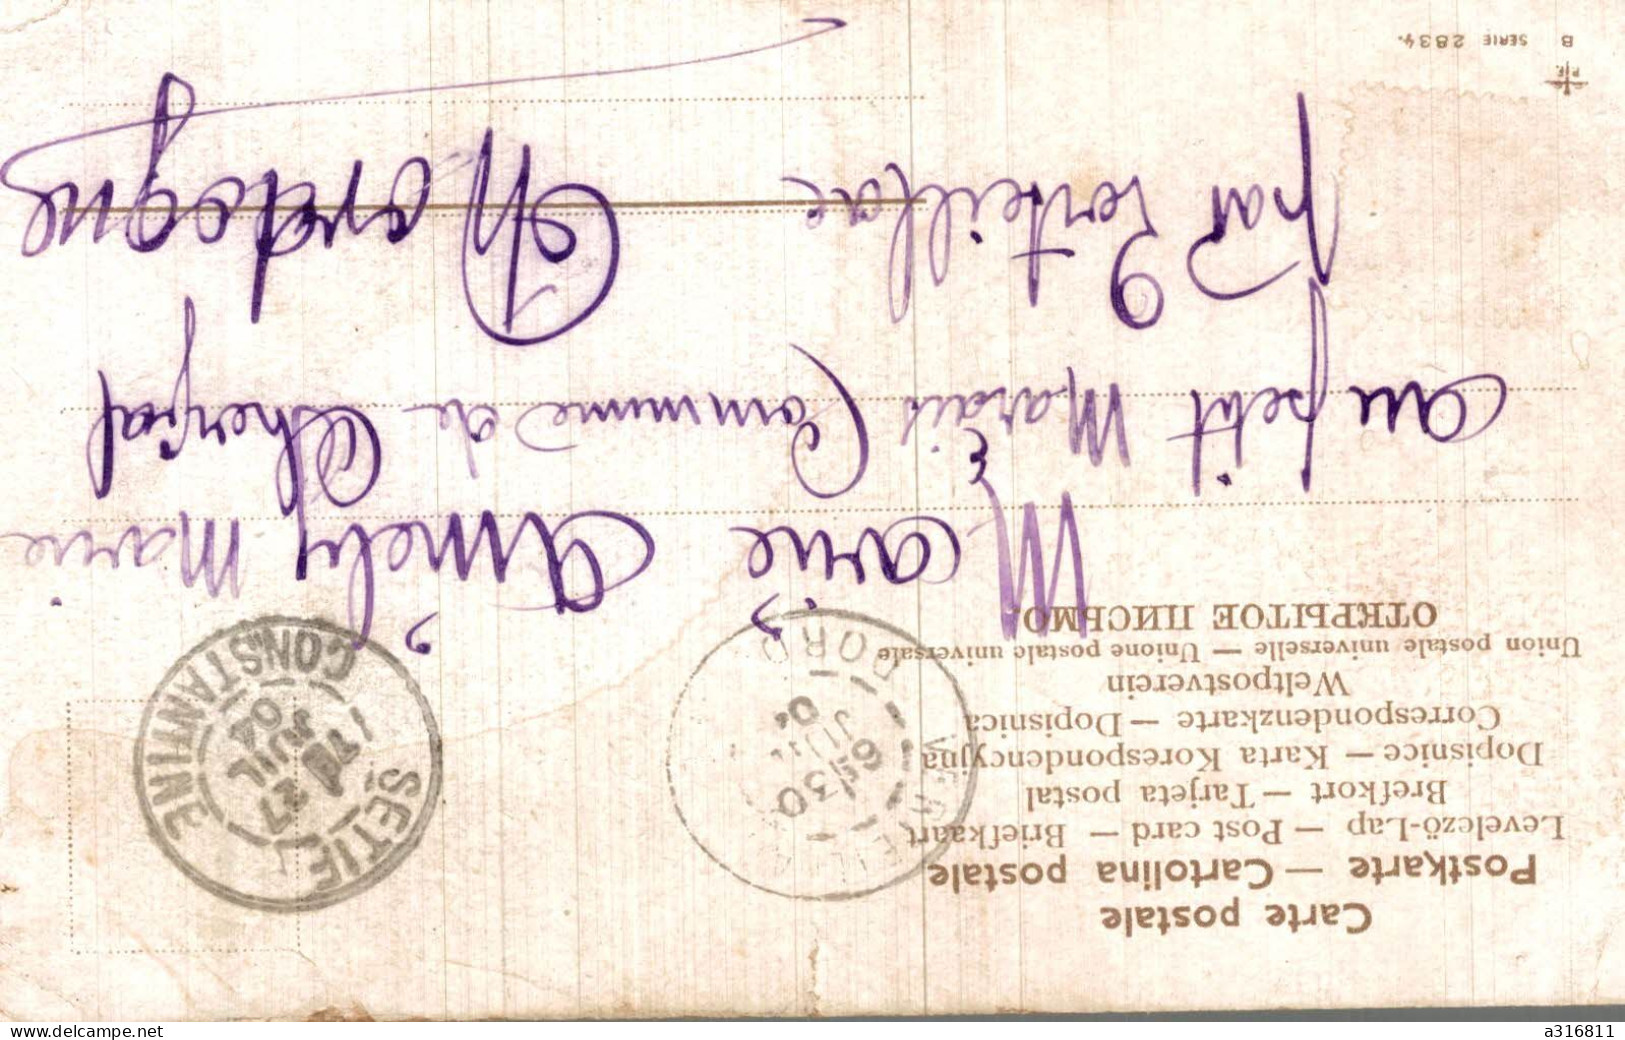 Carte postale
Postkarte — Cartolina postale
Levelező-Lap — Post card — Briefkaart
Brefkort — Tarjeta postal
Dopisnice — Karta Korespondencyjna
Correspondenzkarte — Dopisnica
Weltpostverein
Union postale universelle — Unione postale universale
ОТКРЫТОЕ ПИСЬМО.
SETIF
27
JUIL
04
CONSTANTINE
6 /30
JUIL
04
DORD
Marie
au petit Marais Commune de Cherval
par Verteillac
Dordogne
B SERIE 2834.
www.delcampe.net
a316811